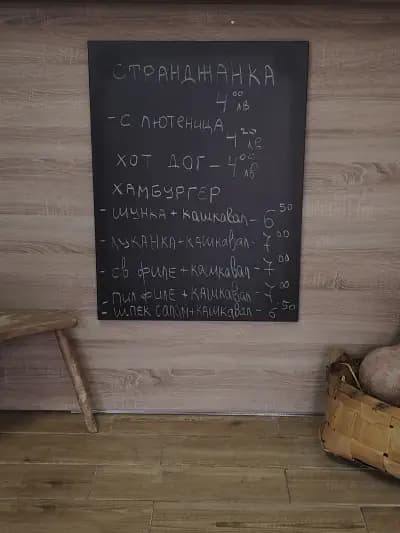 СТРАНДЖАНКА
4⁰⁰ лв
- С ЛЮТЕНИЦА
4²⁰ лв
ХОТ ДОГ - 4⁰⁰ лв
ХАМБУРГЕР
- ШУНКА + КАШКАВАЛ - 6⁵⁰
- ЛУКАНКА + КАШКАВАЛ - 7⁰⁰
- СВ ФИЛЕ + КАШКАВАЛ - 7⁰⁰
- ПИЛ ФИЛЕ + КАШКАВАЛ - 7⁰⁰
- Ш.ПЕК САЛАМ + КАШКАВАЛ - 6⁵⁰